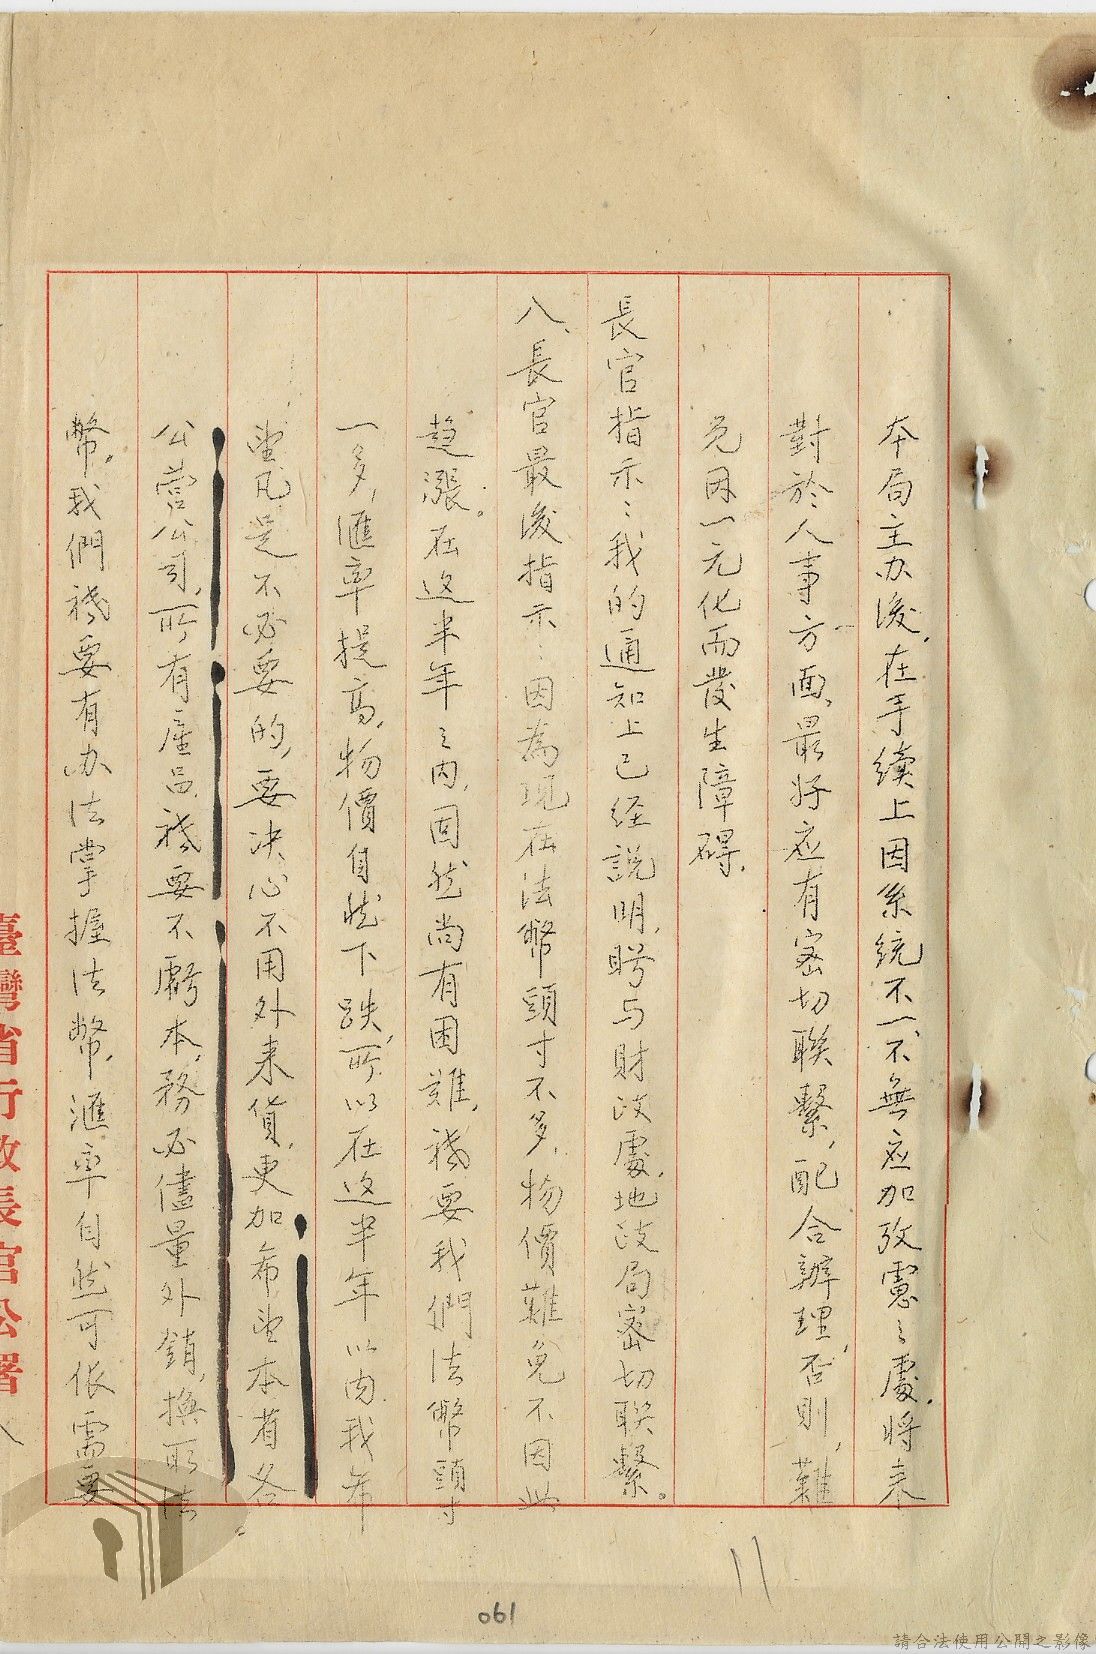 本局主办後,在手續上因系統不一,不無应加攷慮之處,将来
對於人事方面,最好应有密切聯繫,配合辦理,否則,難
免因一元化而發生障碍.
長官指示:我的通知上已经説明,盼与財政處,地政局密切联繫。
八、長官最後指示:因為现在法幣頭寸不多,物價難免不因此
趋漲。在这半年之内,固然尚有困難,祇要我們法幣頭寸
一多,滙率提高,物價自然下跌,所以在这半年以内,我希
望凡是不必要的,要决心不用外来貨,更加希望本省各
公营公司,所有産品,祇要不虧本,務必儘量外銷,换取法
幣。我們祇要有办法掌握法幣,滙率自然可依需要
臺灣省行政長官公署
11
061
請合法使用公開之影像